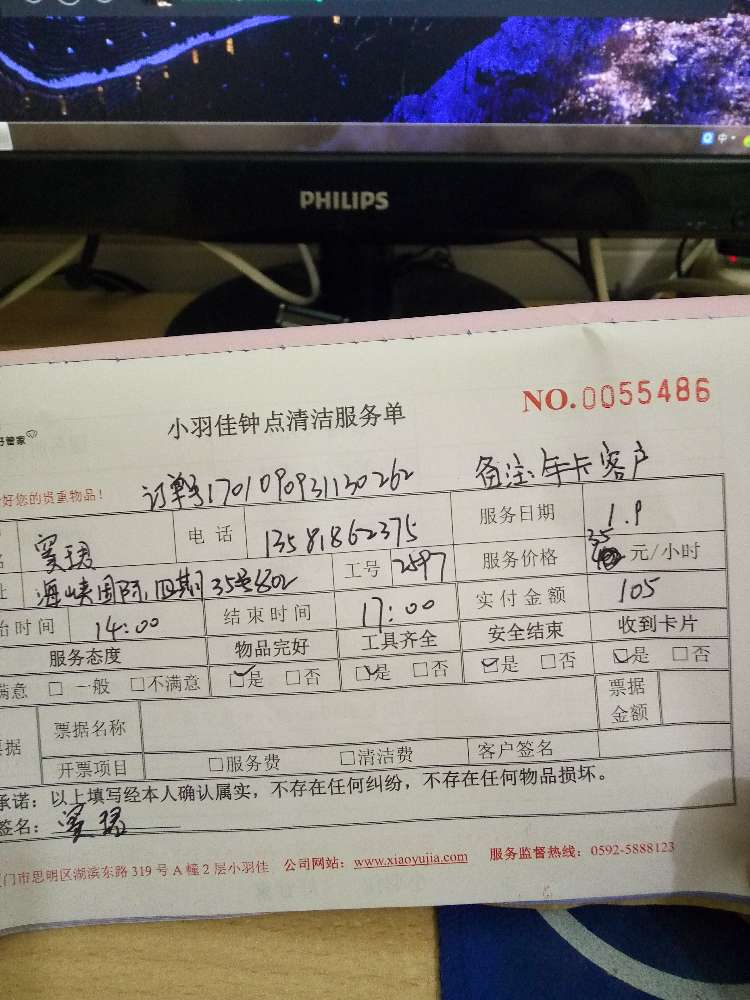 PHILIPS
中
NO.0055486
小羽佳钟点清洁服务单
好管家
好您的贵重物品！ 订单号170109093113026​2 备注：年卡客户
窦珺 电 话 13581862375 服务日期 1.9
址 海峡国际，四期35号802 工号 2597 服务价格 35 元/小时
始时间 14:00 结束时间 17:00 实付金额 105
服务态度 物品完好 工具齐全 安全结束 收到卡片
满意 □ 一般 □不满意 ☑是 □否 ☑是 □否 ☑是 □否 ☑是 □否
票据 票据名称 票据金额
开票项目 □服务费 □清洁费 客户签名
承诺：以上填写经本人确认属实，不存在任何纠纷，不存在任何物品损坏。
签名：窦珺
门市思明区湖滨东路 319 号 A 幢 2 层小羽佳 公司网站：www.xiaoyujia.com 服务监督热线：0592-5888123